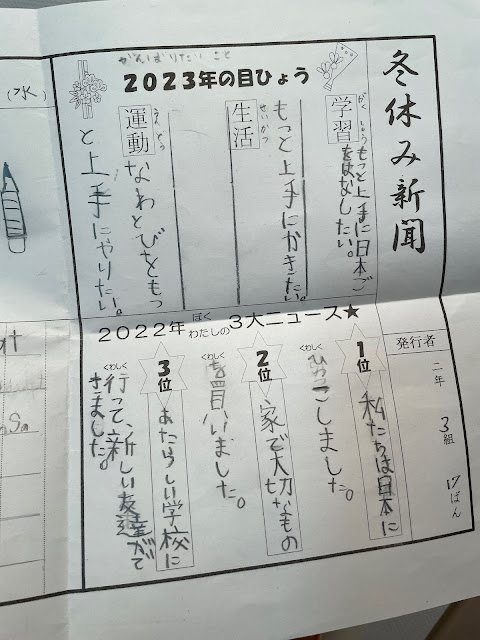 冬休み新聞
発行者
二年
3組
17ばん
がんばりたいこと
2023年の目ひょう
がくしゅう
学習
もっと上手に日本ご
をはなしたい。
せいかつ
生活
もっと上手にかきたい。
うんどう
運動
なわとびをもっ
と上手にやりたい。
2022年
ぼく
わたしの
3大ニュース★
1位
私たちは日本に
くわしく
ひっこしました。
2位
家で大切なもの
くわしく
を買いました。
3位
あたらしい学校に
くわしく
行って、新しい友達ができました。
(水)